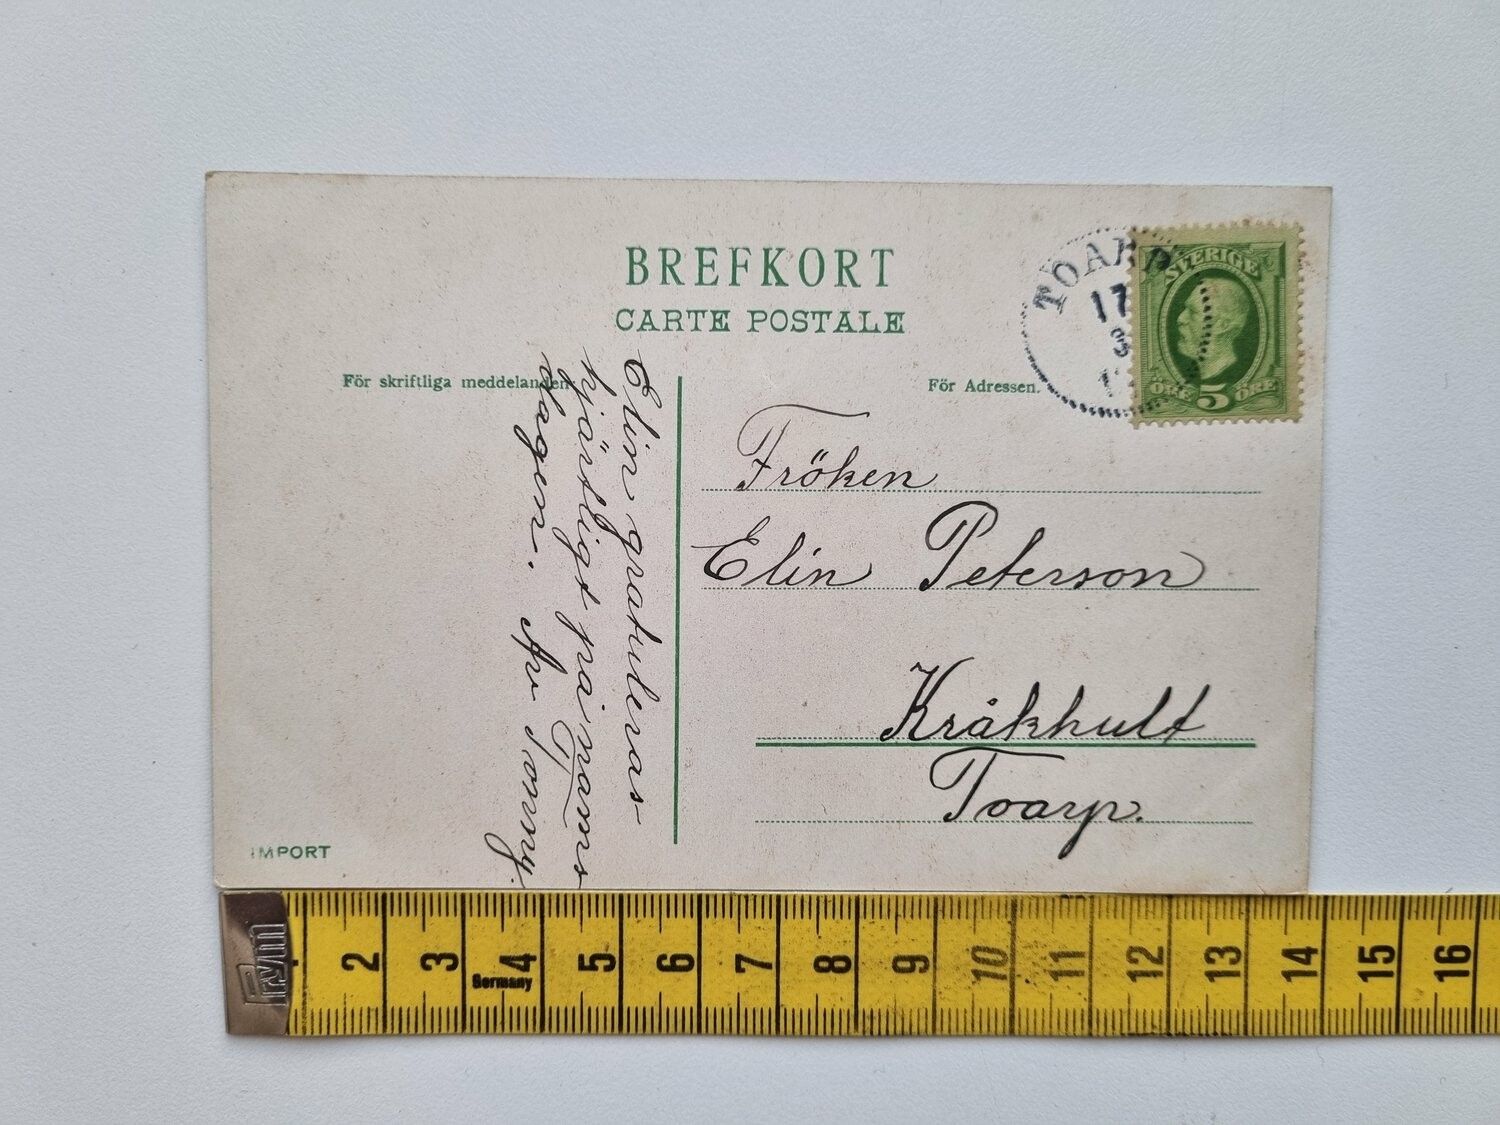 BREFKORT
CARTE POSTALE
För skriftliga meddelanden
För Adressen.
TOARP
17
3
SVERIGE
ÖRE 5 ÖRE
Elin gratuleras
hjärtligt på namns
dagen. Av Sonny.
Fröken
Elin Peterson
Kråkhult
Toarp.
IMPORT
Prym
2 3 4 5 6 7 8 9 10 11 12 13 14 15 16
Germany